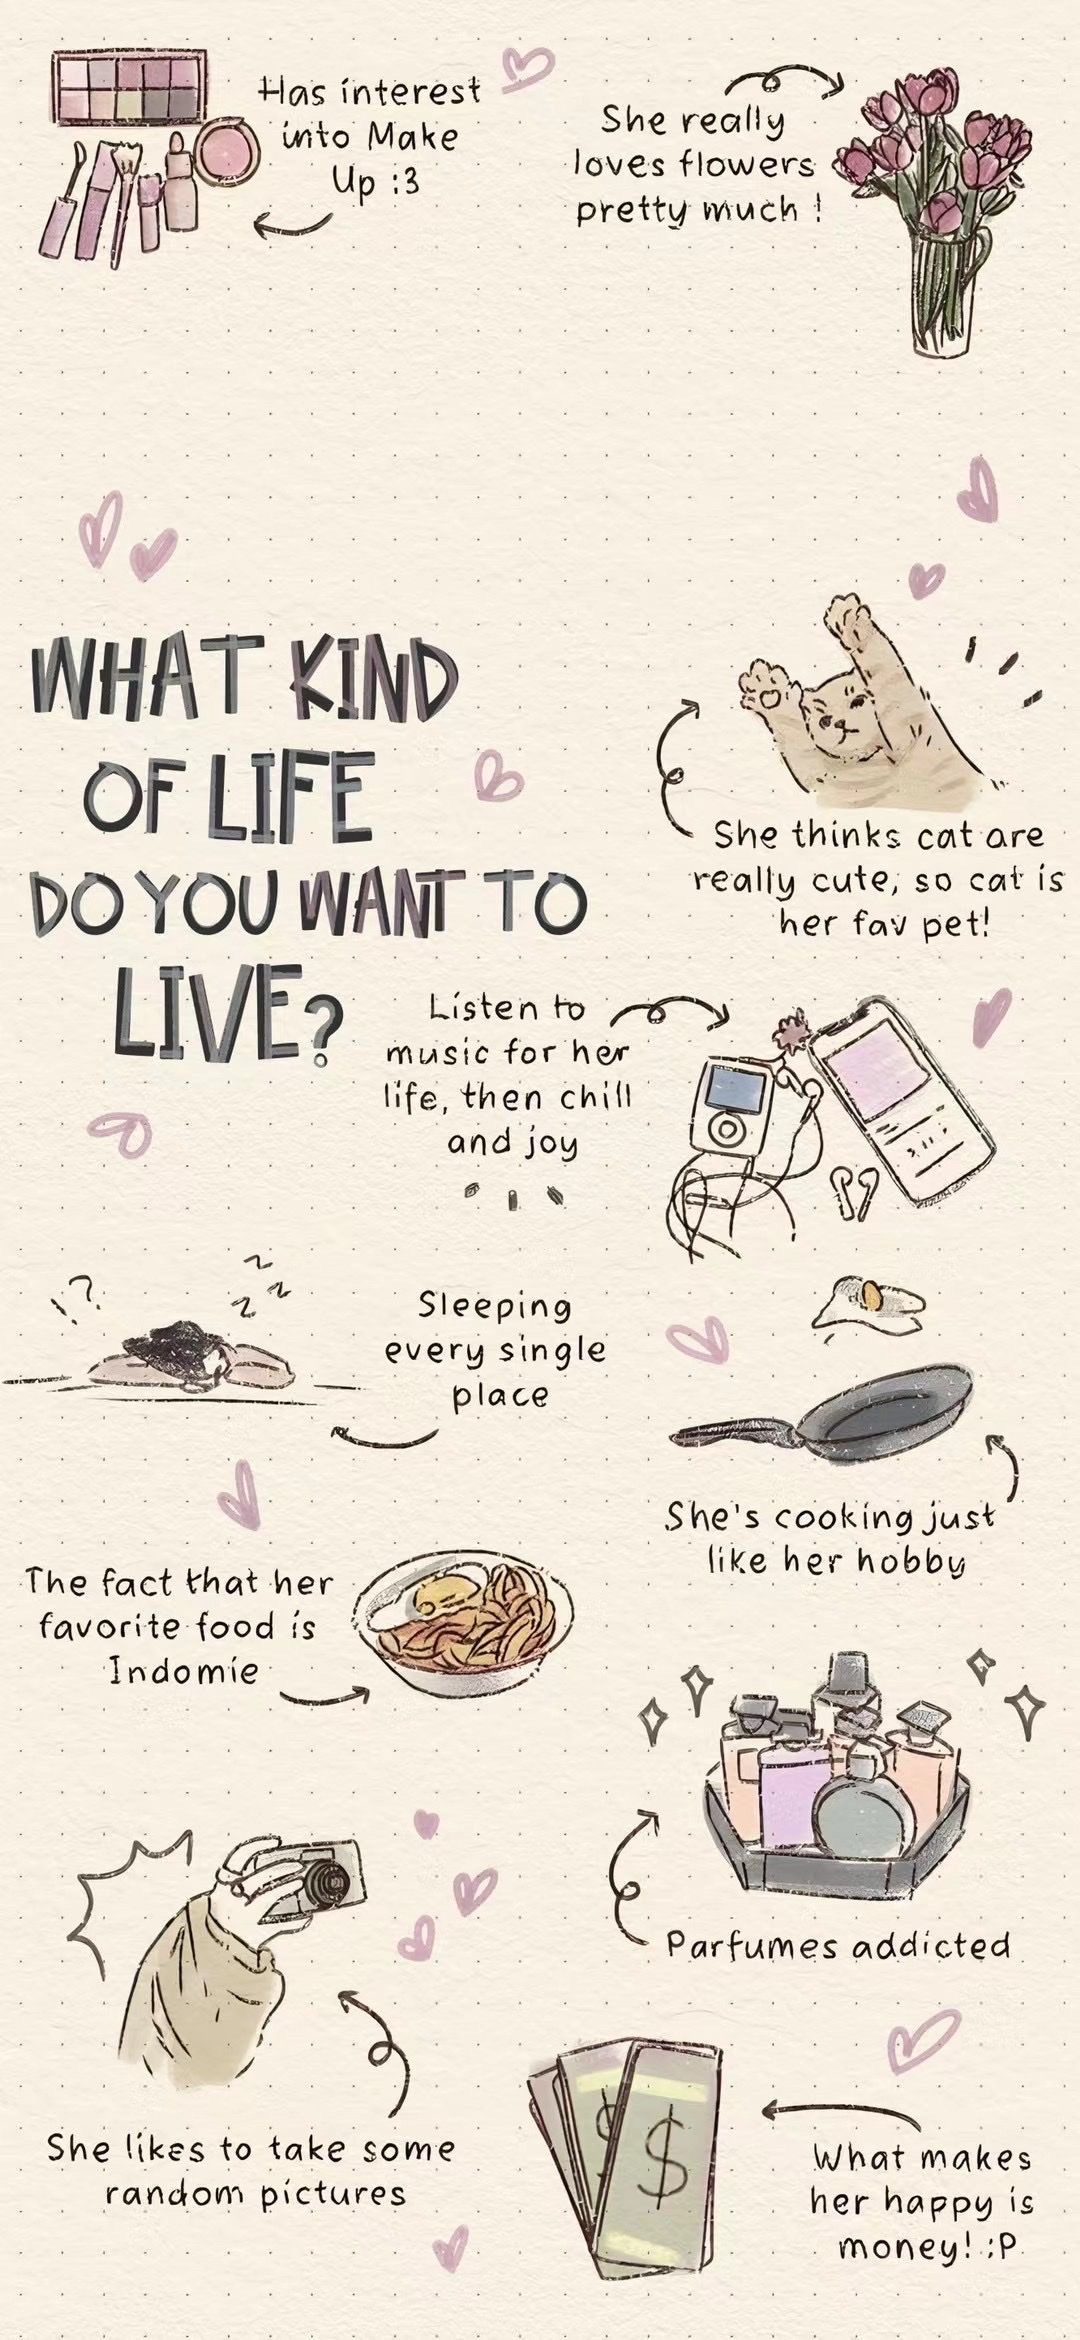 Has interest
into Make
Up :3
She really
loves flowers
pretty much !
WHAT KIND
OF LIFE
DO YOU WANT TO
LIVE?
She thinks cat are
really cute, so cat is
her fav pet!
Listen to
music for her
life, then chill
and joy
! ?
z
z z
Sleeping
every single
place
She's cooking just
like her hobby
The fact that her
favorite food is
Indomie
Parfumes addicted
She likes to take some
random pictures
$ $
What makes
her happy is
money! :P